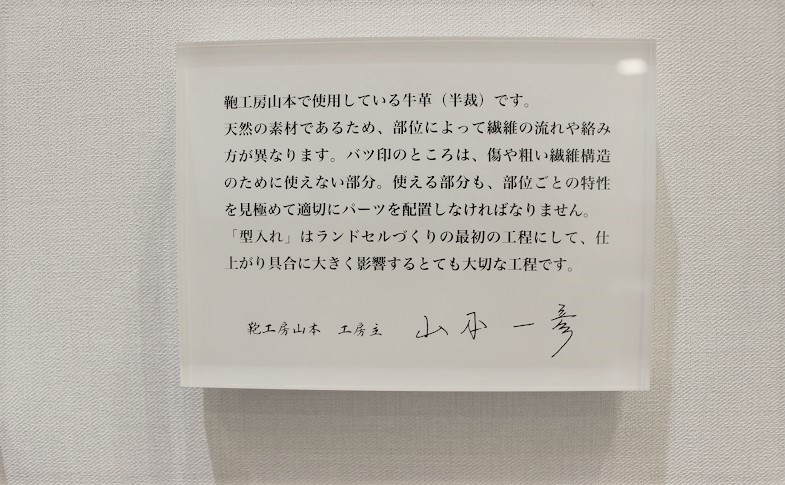 鞄工房山本で使用している牛革（半裁）です。
天然の素材であるため、部位によって繊維の流れや絡み
方が異なります。バツ印のところは、傷や粗い繊維構造
のために使えない部分。使える部分も、部位ごとの特性
を見極めて適切にパーツを配置しなければなりません。
「型入れ」はランドセルづくりの最初の工程にして、仕
上がり具合に大きく影響するとても大切な工程です。
鞄工房山本　工房主　山本一彦